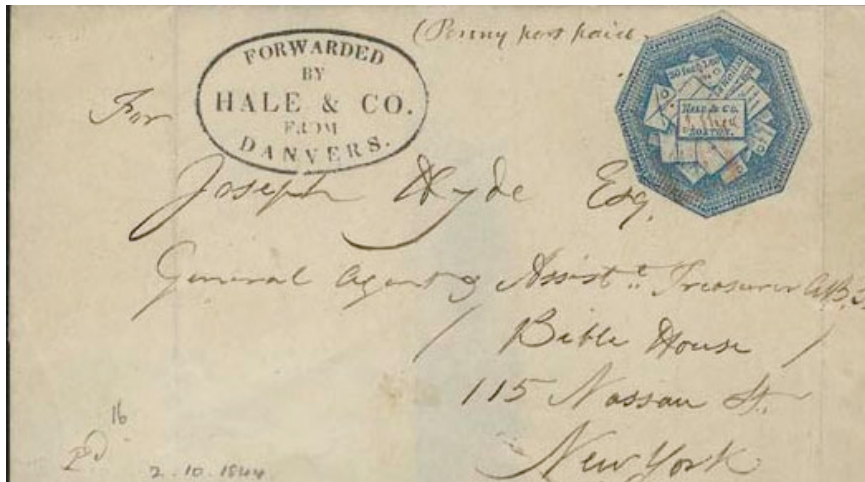 (Penny post paid
FORWARDED
BY
HALE & CO.
FROM
DANVERS.
HALE & CO.
BOSTON.
For
Joseph Hyde Esq.
General Agent & Assist.t Treasurer A.B.S.
Bible House
115 Nassau St.
New York
16
pd
2.10.1844